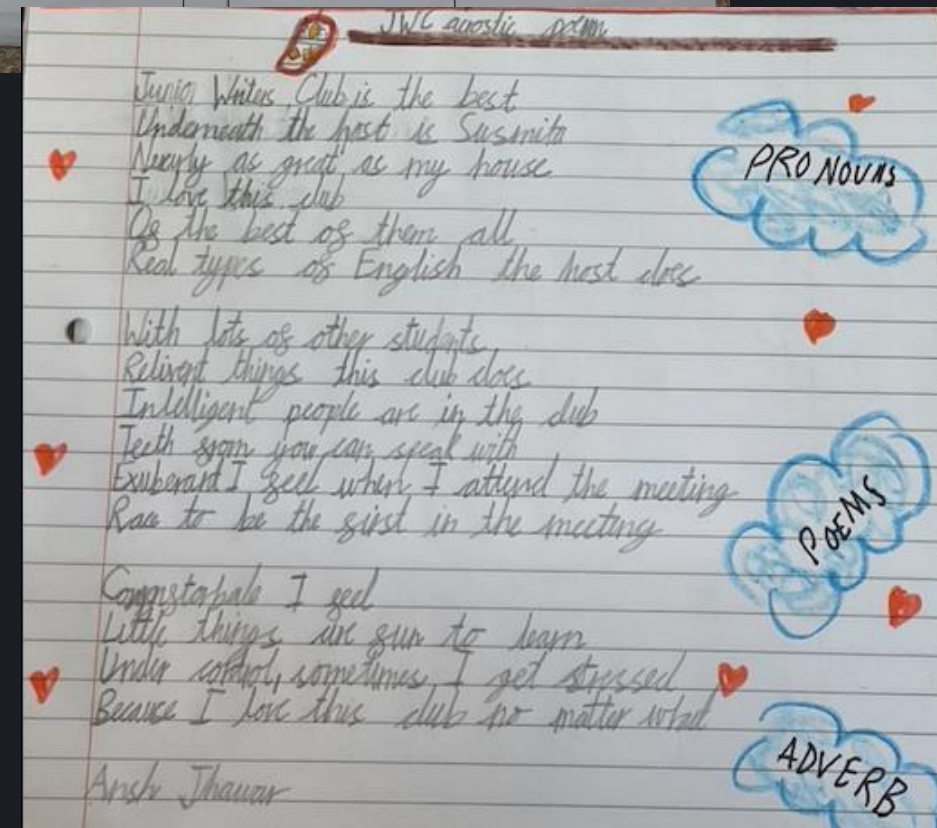 JWC acrostic poem
Junior Writers Club is the best
Underneath the host is Susmita
Nearly as great as my house
I love this club
Of the best of them all
Real types of English the host does
PRONOUNS
With lots of other students
Relivent things this club does
Intelligent people are in the club
Teeth from you can speak with
Exuberant I feel when I attend the meeting
Race to be the first in the meeting
POEMS
Comfstorbale I feel
Little things are fun to learn
Under control, sometimes I get stressed
Because I love this club no matter what
ADVERB
Ansh Jhawar